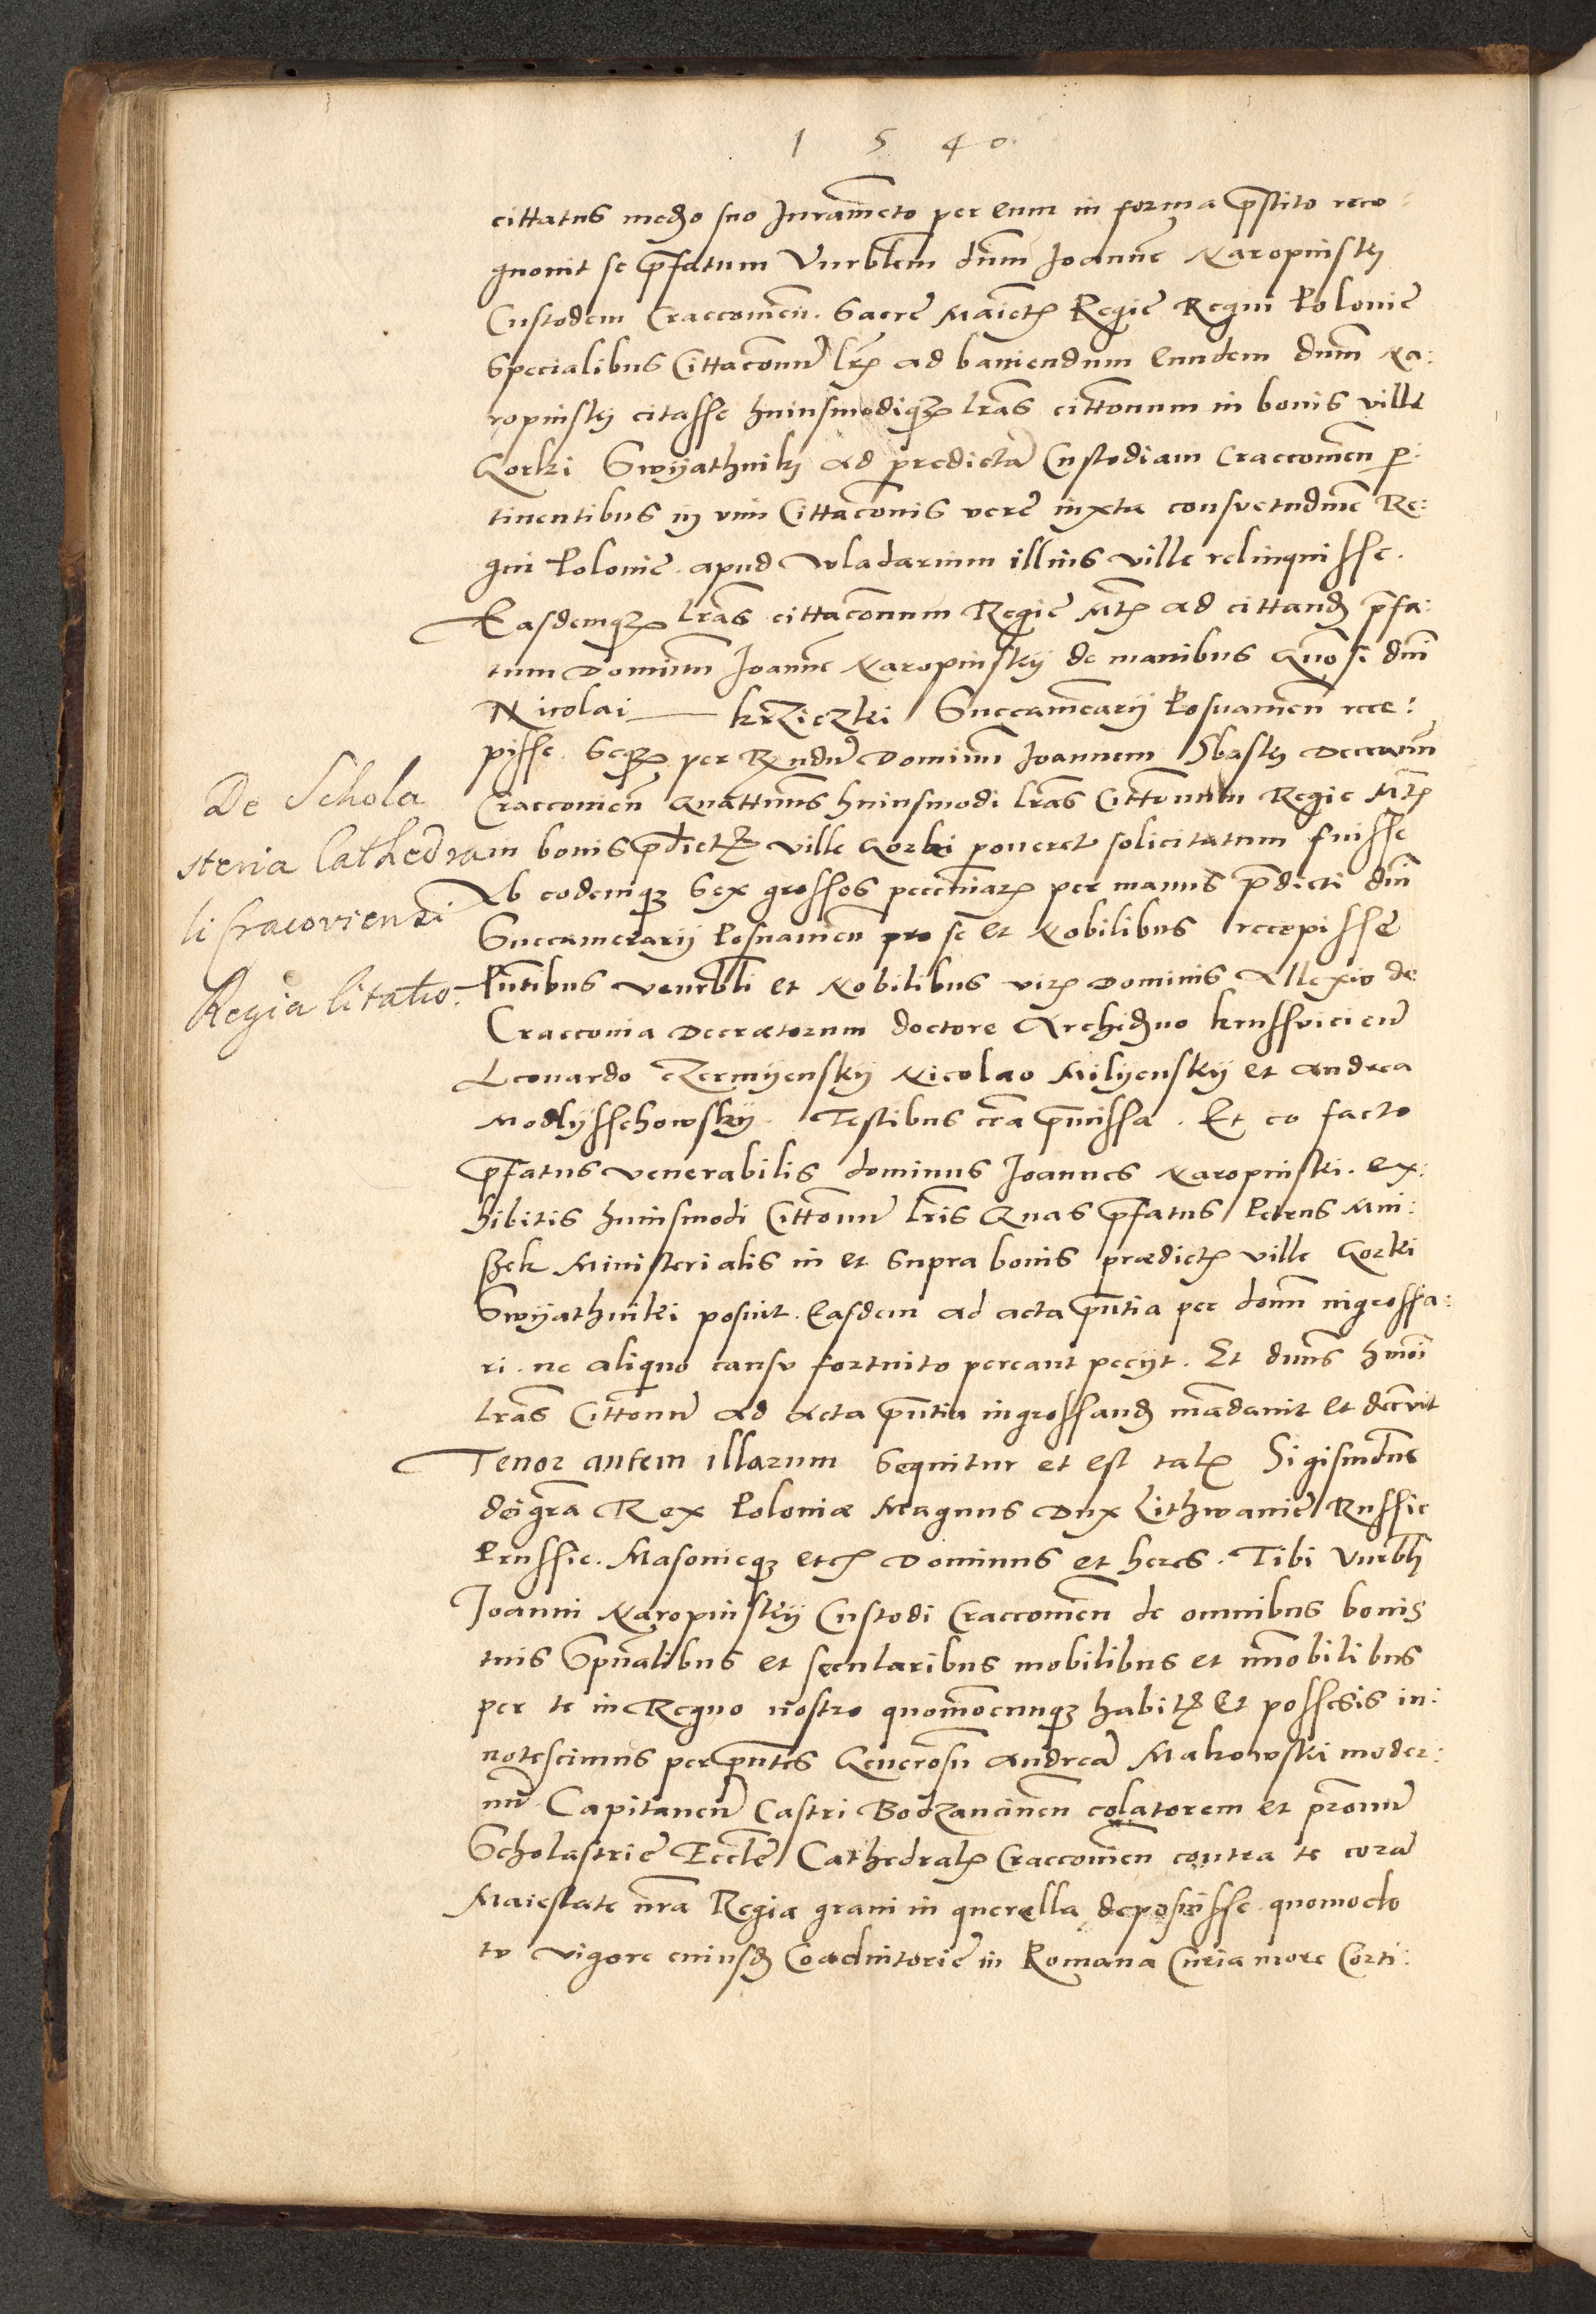 1 5 4 0
cittatus medio suo Juramēto per eum in forma p̄stito reco-
gnouit se p̄fatum Vnrblem dnm̄ Joannē Karopinskij
Custodem Craccouien̄. Sacre Maiet̄ Regie Regni Polonie
Specialibus Cittac̄onum̄ lrīs ad baniendum eundem dnm̄ Ka:
ropinskij citasse huiusmodiqȝ lrās citt̄onum in bonis ville
Gorki Swyathnikj ad predictā Custodiam Craccouien̄ p:
tinentibus in vim Cittac̄onis vere iuxta consvetudinē Re:
gni Polonie. apud wladarium illius ville relinquisse.
Easdemqȝ lrās cittac̄onum Regie Mt̄is ad cittand̄ p̄fa:
tum Dominum Joannē Karopinskij de manibus Gn̄osi dnī
Nicolai krziczki Succamērarij Posnanien̄ rece:
pisse. Seqȝ per Rn̄dum̄ Dominum Joannem Decanum̄
Craccouien̄ Quattenus huiusmodi lrās Citt̄onum Regie Mt̄is
in bonis p̄dictȩ ville Gorki poneret solicitatum fuisse
Ab eodemqȝ Sex grossos pecuniarȝ per manus p̄dicti dnī
Succamerarij Posnanien̄ pro se et Nobilibus recepisse
Pn̄tibus venrbli et Nobilibus viris Dominis Allexio de
Cracconia Decretorum doctore Archid̄no krussvicien̄
Leonardo Czermyenskij Nicolao Milyenskij et Andrea
Modlysschowskij. Testibus cr̄a p̄missa. Et eo facto
p̄fatus venerabilis dominus Joannes Karopinski. ex:
hibitis huiusmodi Citt̄onum̄ lrīs Quas p̄fatus Petrus Mni:
szek Ministerialis in et supra bonis prædictȩ ville Gorki
Swyathniki posuit. Easdem ad acta p̄ntia per dom̄ ingrossa:
ri. ne aliquo cansu fortuito pereant pecijt. Et dnūs hm̄oi
lrās Citt̄onum̄ ad Acta p̄ntia ingrossand̄ mādauit et decreuit
Tenor autem illarum sequitur et est talis Sigismūdus
dei grā Rex Poloniæ Magnus Dux Lithwanie Russie
Prussie. Masonieqȝ etc̄ Dominus et heres. Tibi Vnrbli
Joanni Karopinskij Custodi Craccouien̄ de omnibus bonis
tuis Sp̄ualibus et secularibus mobilibus et immobilibus
per te in Regno nostro quomōcunqȝ habitis et possesis in:
notescimus per p̄ntes Generosū Andreā Makowski moder:
nū Capitaneū Castri Bodzancinen̄ colatorem et pr̄onum̄
Scholastrie Eccl̄e Cathedralis Craccouien̄ contra te corā
Maiestate nr̄a Regia graui in querella deposuisse quomodo
tv vigore cuiusd̄ Coadiutorie in Romana Curia more Corti:
De Schola
steria Cathedra
li Cracoviensi
Regia Citatio.